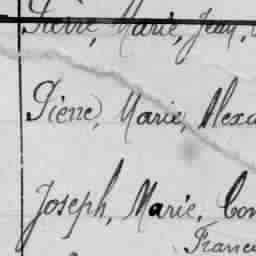 Pierre, Marie, Jean,
Pierre, Marie, Alexa
Joseph, Marie, Con
France